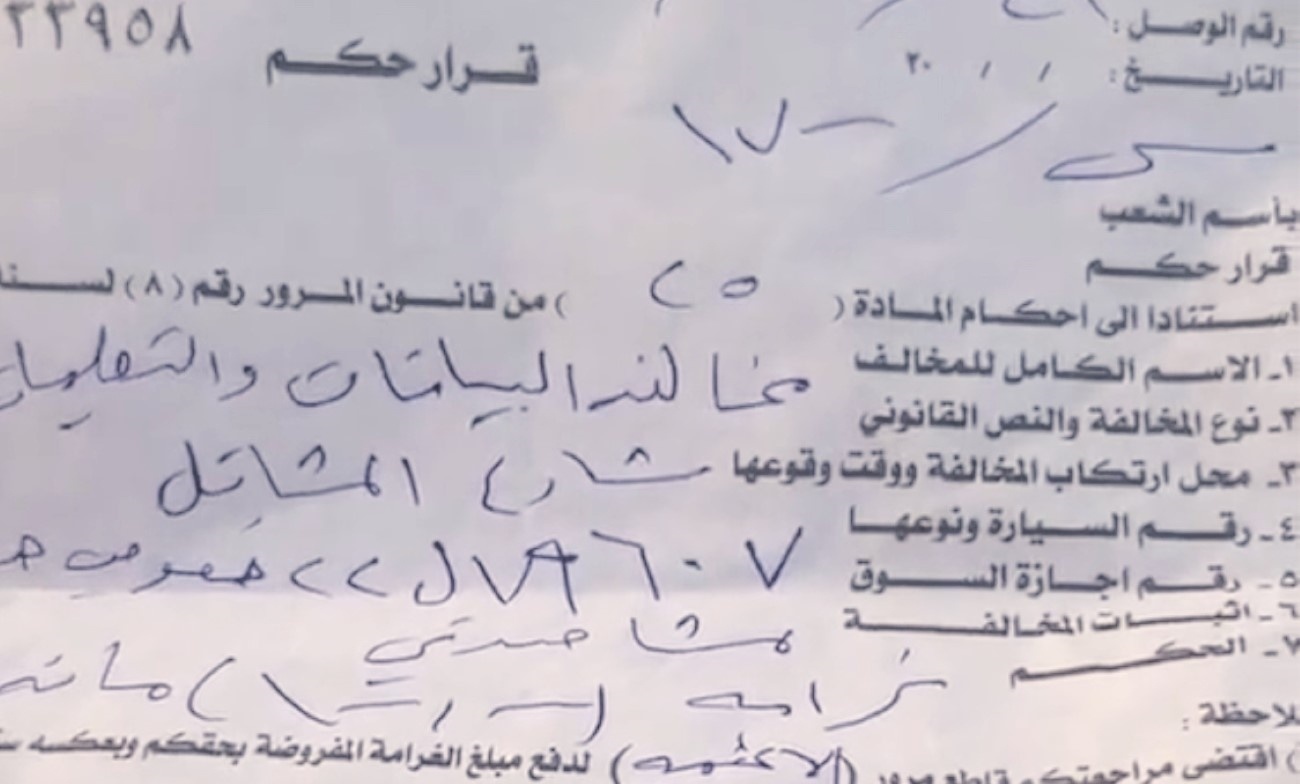 ٣٣٩٥٨
رقم الوصل :
قرار حكم
التاريخ : / / ٢٠
باسم الشعب
قرار حكم
استنادا الى احكام المادة ( ٢٥ ) من قانون المرور رقم (٨) لسنة
١ـ الاسم الكامل للمخالف
٢ـ نوع المخالفة والنص القانوني مخالفة البيانات والتعليمات
٣ـ محل ارتكاب المخالفة ووقت وقوعها شارع المشاتل
٤ـ رقم السيارة ونوعها
٥ـ رقم اجازة السوق ٢٢ ل ٧٨٦٠٧ خصوصي
٦ـ اثبات المخالفة مشاهدتي
٧ـ الحكم غرامة مائة
ملاحظة :
) اقتضى مراجعتكم قاطع مرور (الاعظمية) لدفع مبلغ الغرامة المفروضة بحقكم وبعكسه